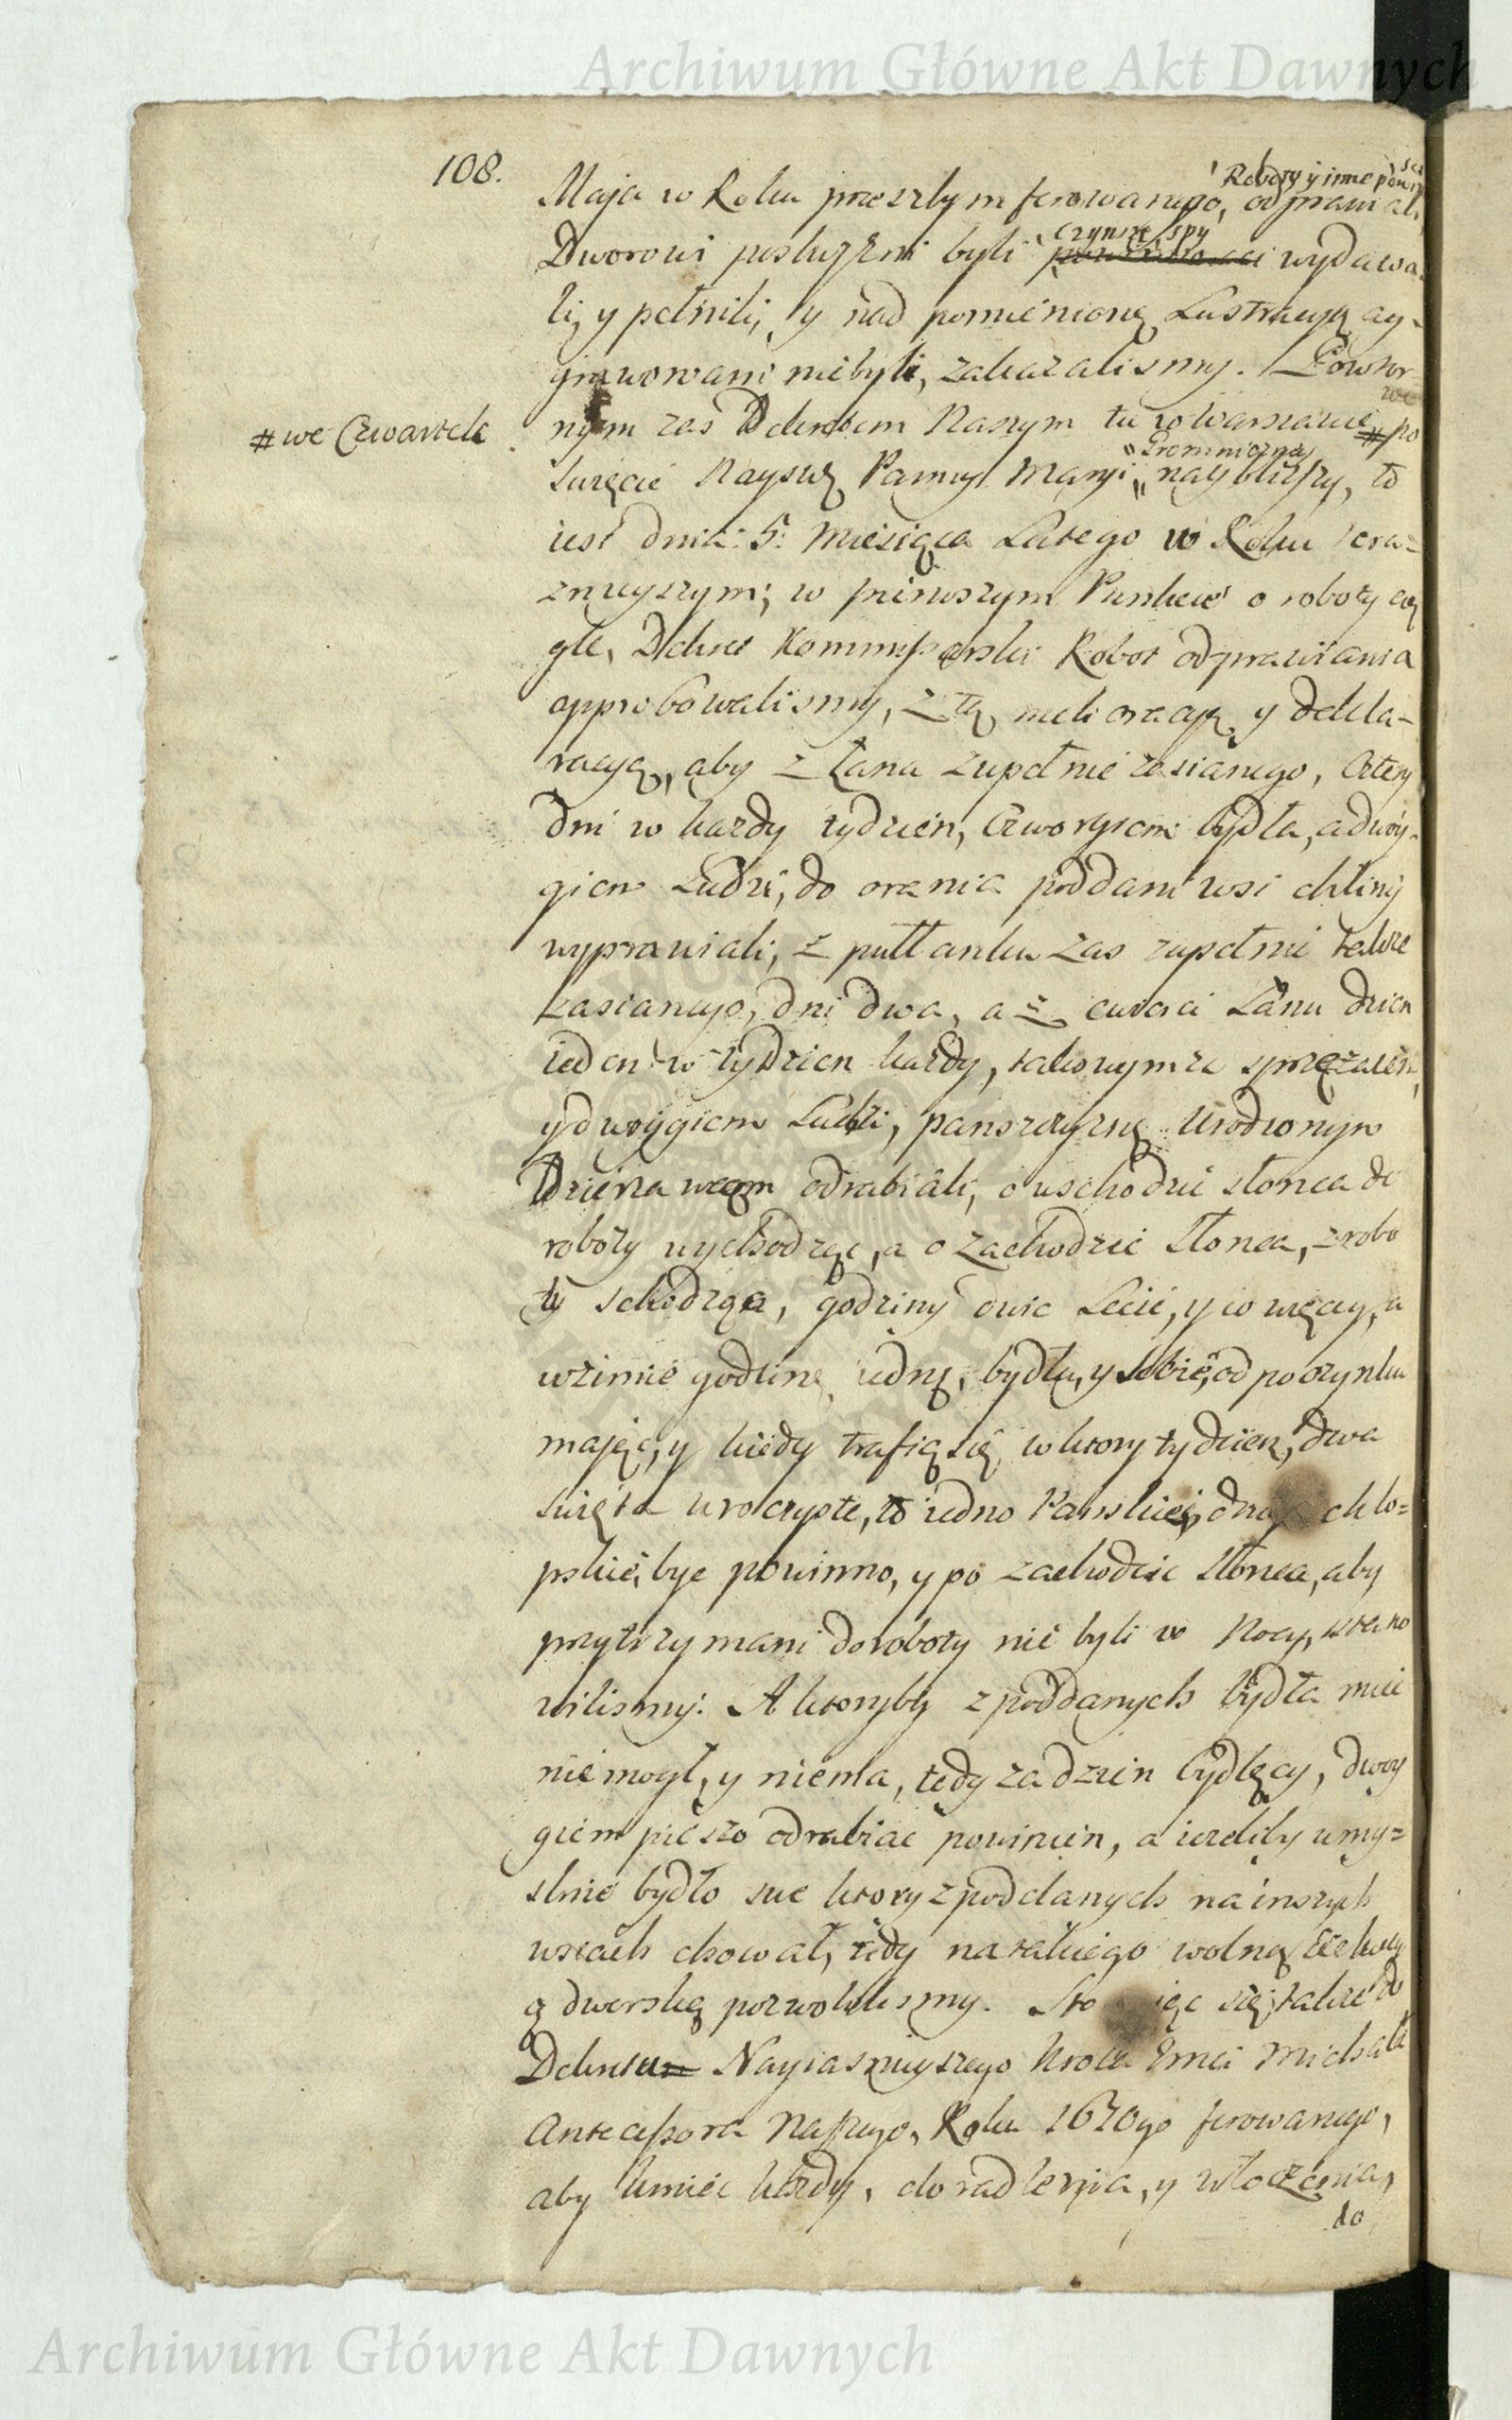 Archiwum Główne Akt Dawnych
108.
Roboty y inne powin
Maja w Roku przeszłym ferowanego, odprawiali,
czynsze, spy
Dworowi posłuszni byli wydawa
li, y pełnili, y nad pomienioną Lustracyą ag-
grawowani niebyli, zakazalismy. Powtor
nym zas Dekretem Naszym tu w Warszawie # po
# we Czwartek
Gromniczney
Swięcie Nayswę Panny Maryi nayblizszy, to
iest dnia 5. Miesiąca Lutego w Roku tera=
znieyszym; w pierwszym Punkcie o roboty cią
głe, Dekret Kommissarski Robot odprawiania
approbowalismy, z tą melioracyą y dekla-
racyą, aby z łana zupełnie zasianego, Cztery
dni w kazdy tydzien, Czworgiem bydła, a dwoy-
giem Ludzi, do orania poddani wsi Chliny
wyprawiali, z pułłanku zas zupełnie także
zasianego, dni dwa, a z cwierci Łanu dzien
ieden w tydzien kazdy, takowymze sprzężaiem,
y dwoygiem Ludzi, panszczyznę Urodzonym
Dzierzawcom odrabiali, o wschodzie słonca do
roboty wychodząc, a o zachodzie Słonca, z robo
ty schodząc, godziny dwie Lecie, y co więcey, a
w zimie godzinę iednę, bydłu, y sobie, odpoczynku
mając, y kiedy trafią się w ktory tydzien, dwa
swięta uroczyste, to iedno Panskie, drugie chło=
pskie, byc powinno, y po zachodzie Słonca, aby
przytrzymani do roboty nie byli w Nocy, postano
wilismy. A ktoryby z poddanych bydła miec
niemogł, y niema, tedy za dzien bydlęcy, dwoy
giem pieszo odrabiac powinien, a iezeliby umy=
slnie bydło swe ktory z poddanych na inszych
wsiach chował, tedy na takiego wolną Exekucy
ą dworską pozwolilismy. Sto iąc się takze do
Dekretu Nayiasnieyszego Krola Jmci Michała
Antecessora Naszego, Roku 1670go ferowanego,
aby kmiec kazdy, do radlenia, y włoczenia,
do
Archiwum Główne Akt Dawnych